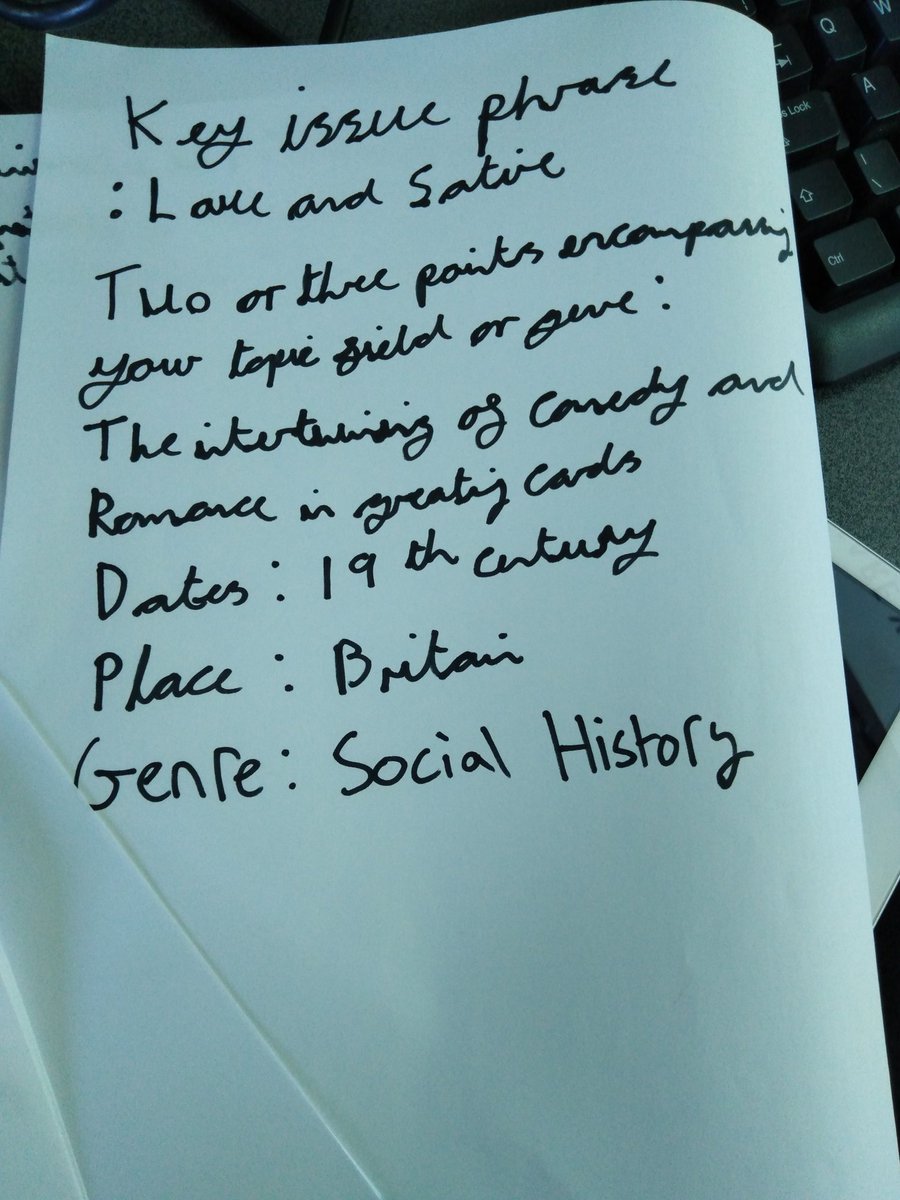 Key issue phrase
: Love and Satire
Two or three points encompassing
your topic field or genre:
The intertwining of comedy and
Romance in greating cards
Dates: 19th century
Place: Britain
Genre: Social History
Q
W
A
s Lock
Ctrl